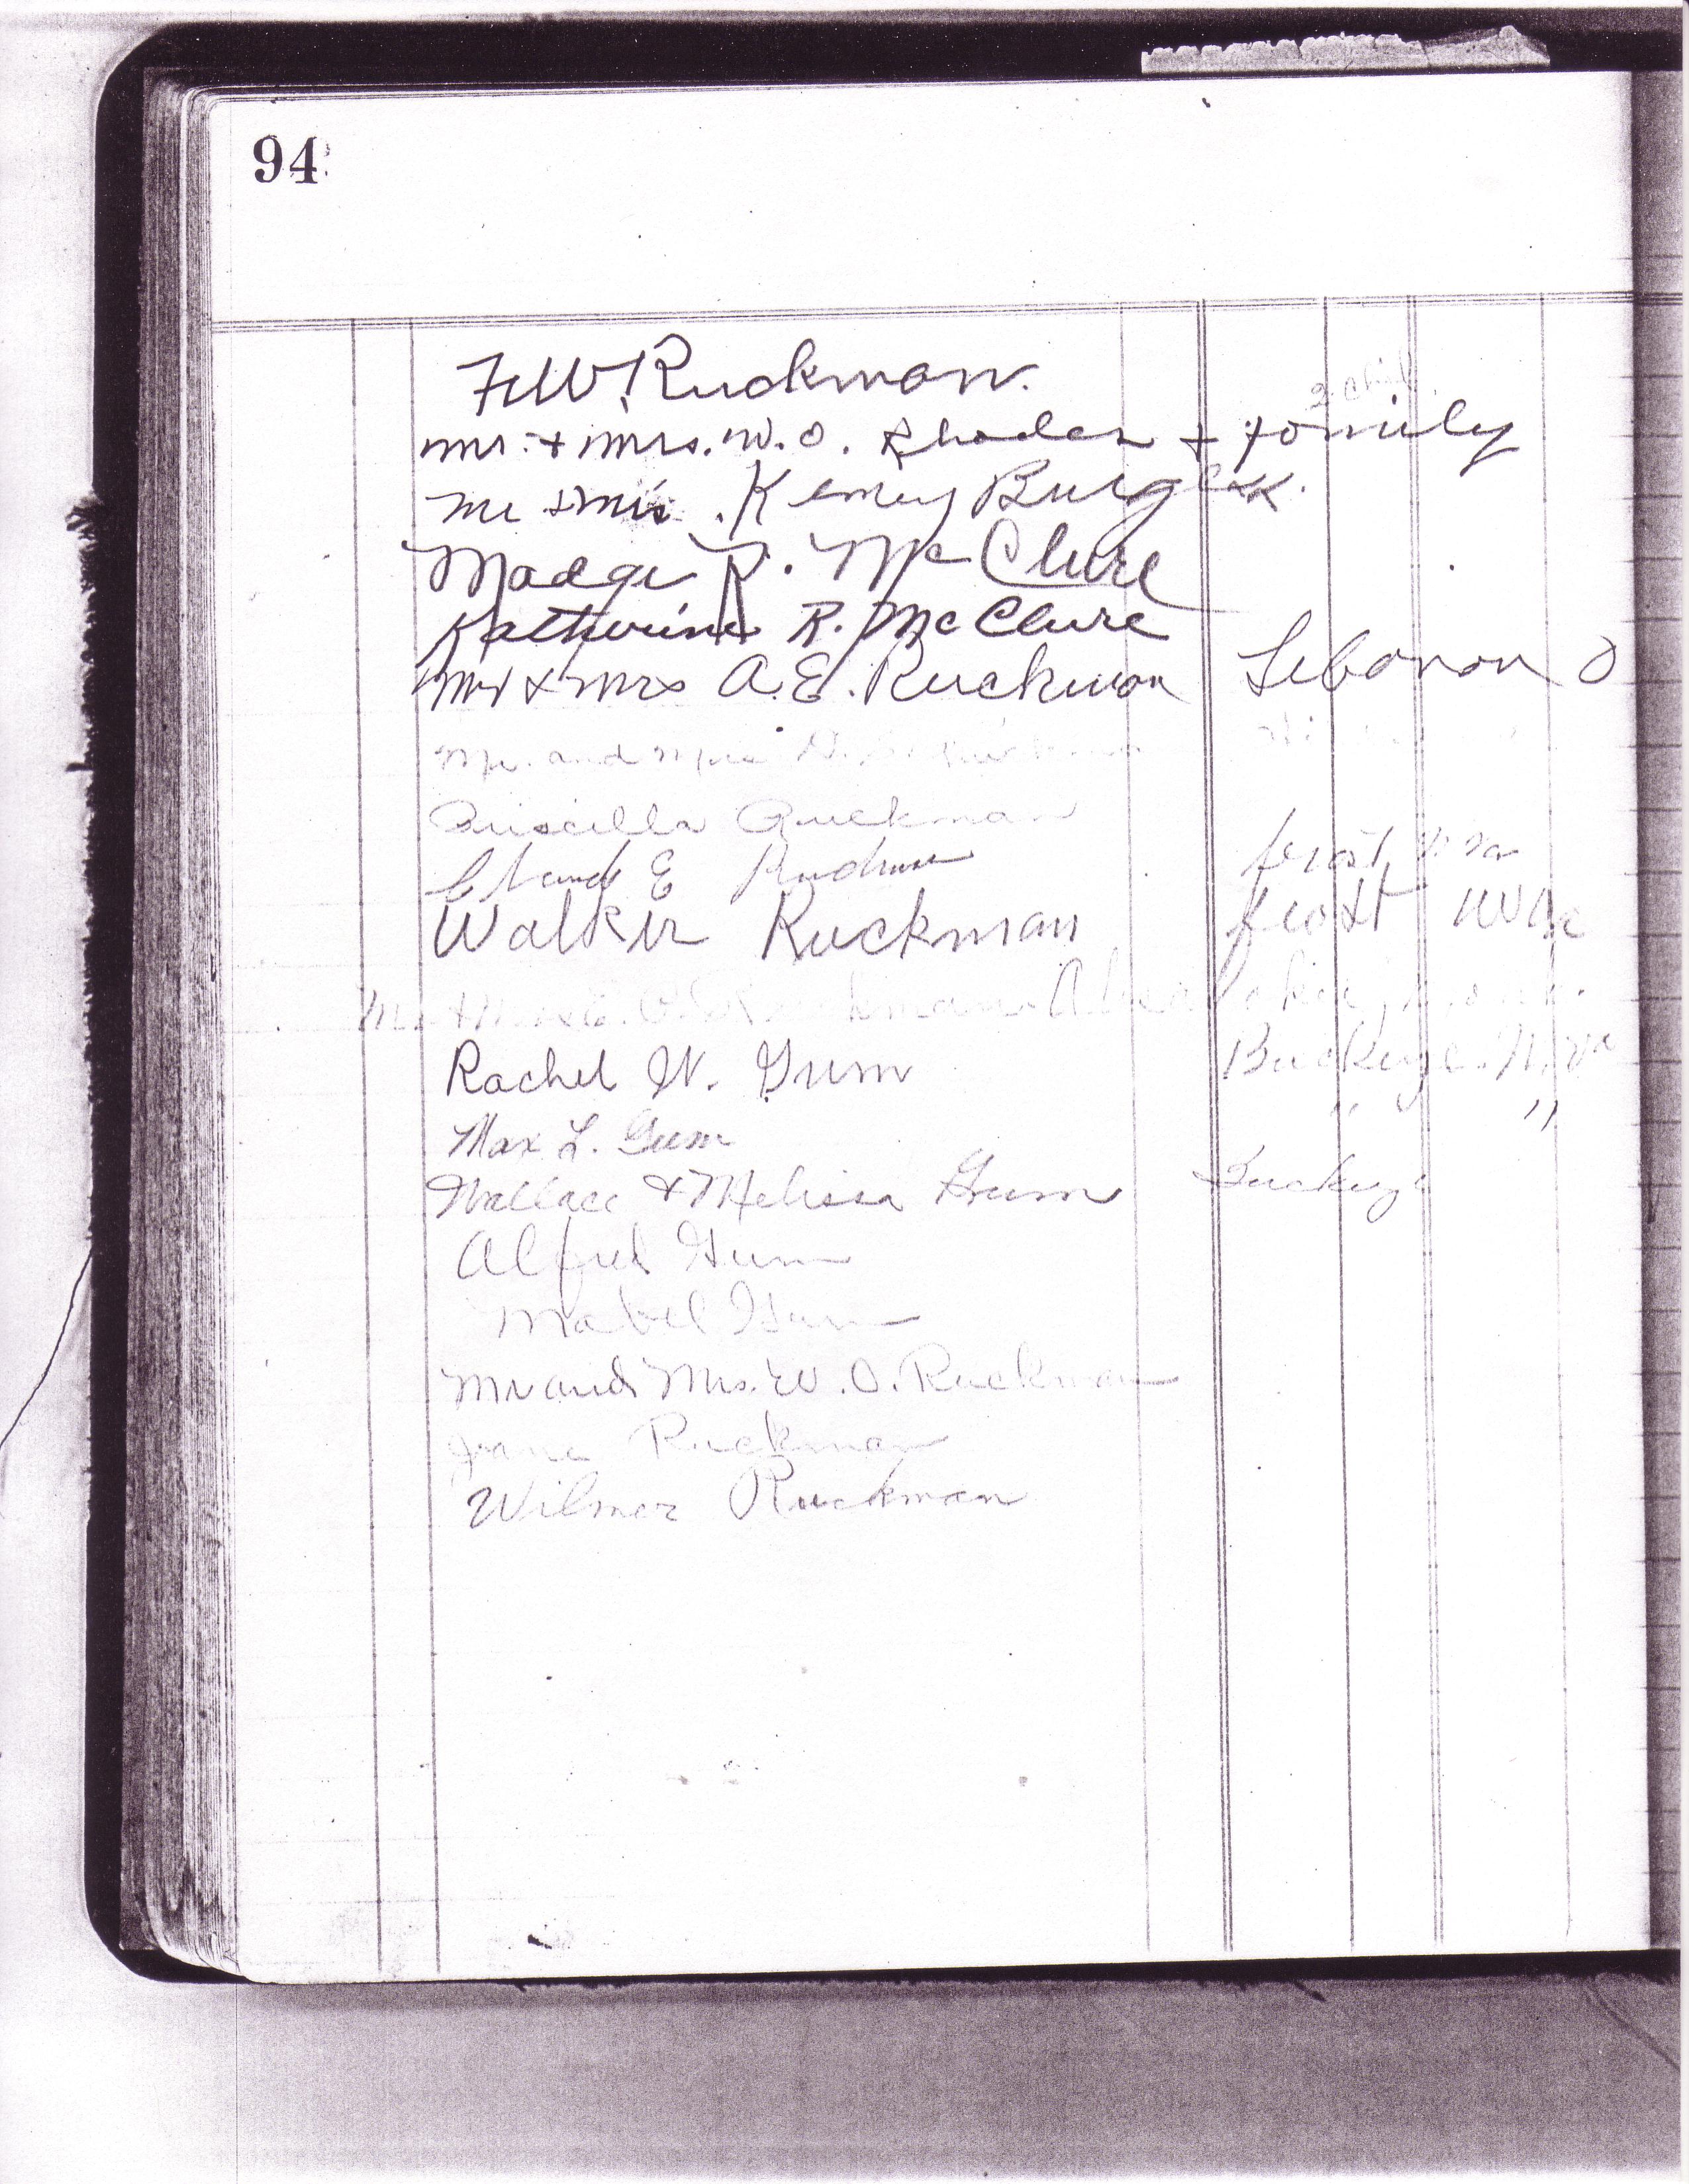 94
F.W. Ruckman.
2 Child.
Mr. + Mrs. W. O. Rhodes + family
Mr + Mrs. Kemey
Madge R. McClure
Katherine R. McClure
Mr + Mrs A. E. Ruckman Lebanon O
Mr. and Mrs Ruckman
Priscilla Ruckman
Claude E Ruckman Frost, W Va
Walker Ruckman Frost WVa
Mr. + Mrs. Ruckman
Rachel W. Gum Buckeye. W. Va
Max L. Gum " "
Wallace + Melissa Gum Buckeye
Alfred Gum
Mabel Gum
Mr and Mrs. W. O. Ruckman
Ruckman
Wilmer Ruckman